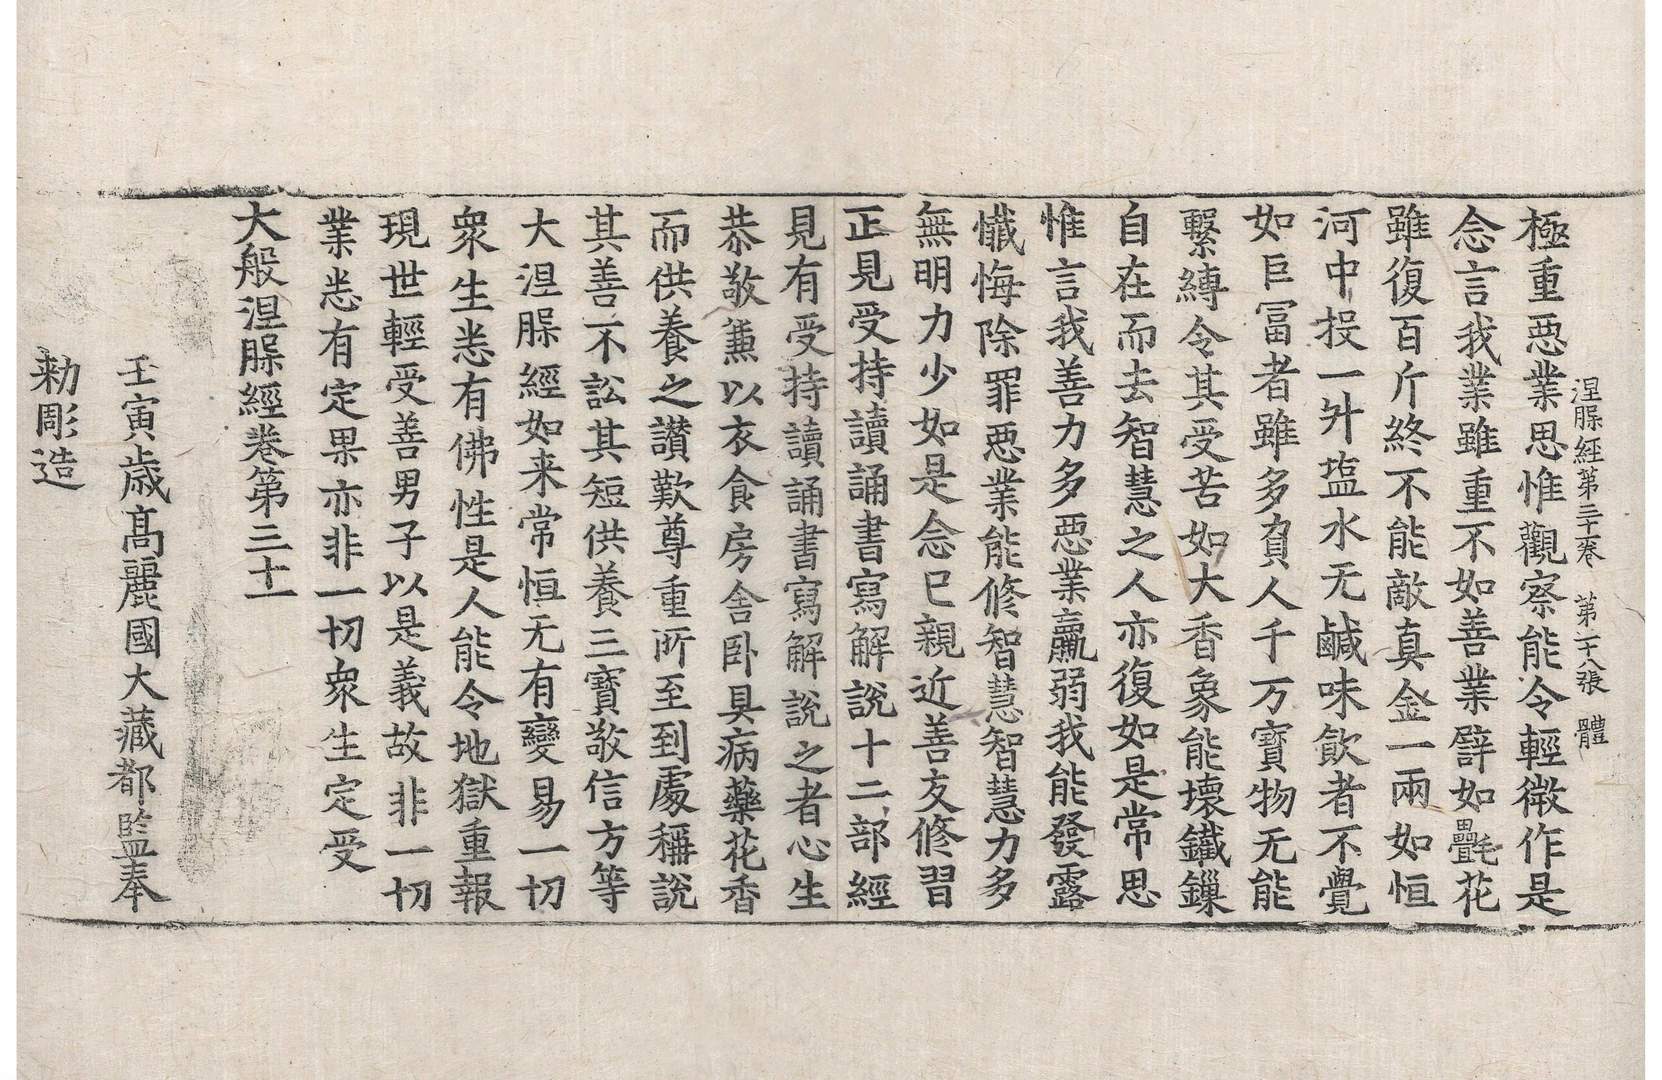 涅槃經第三十一卷 第二十八張 體
極重惡業思惟觀察能令輕微作是
念言我業雖重不如善業譬如㲲花
雖復百斤終不能敵真金一兩如恒
河中投一升塩水无鹹味飲者不覺
如巨富者雖多負人千万寶物无能
繫縛令其受苦如大香象能壞鐵鏁
自在而去智慧之人亦復如是常思
惟言我善力多惡業羸弱我能發露
懺悔除罪惡業能修智慧智慧力多
無明力少如是念已親近善友修習
正見受持讀誦書寫解說十二部經
見有受持讀誦書寫解說之者心生
恭敬兼以衣食房舍卧具病藥花香
而供養之讃歎尊重所至到處稱說
其善不訟其短供養三寶敬信方等
大涅槃經如来常恒无有變易一切
衆生悉有佛性是人能令地獄重報
現世輕受善男子以是義故非一切
業悉有定果亦非一切衆生定受
大般涅槃經卷第三十一
壬寅歳高麗國大藏都監奉
勑彫造